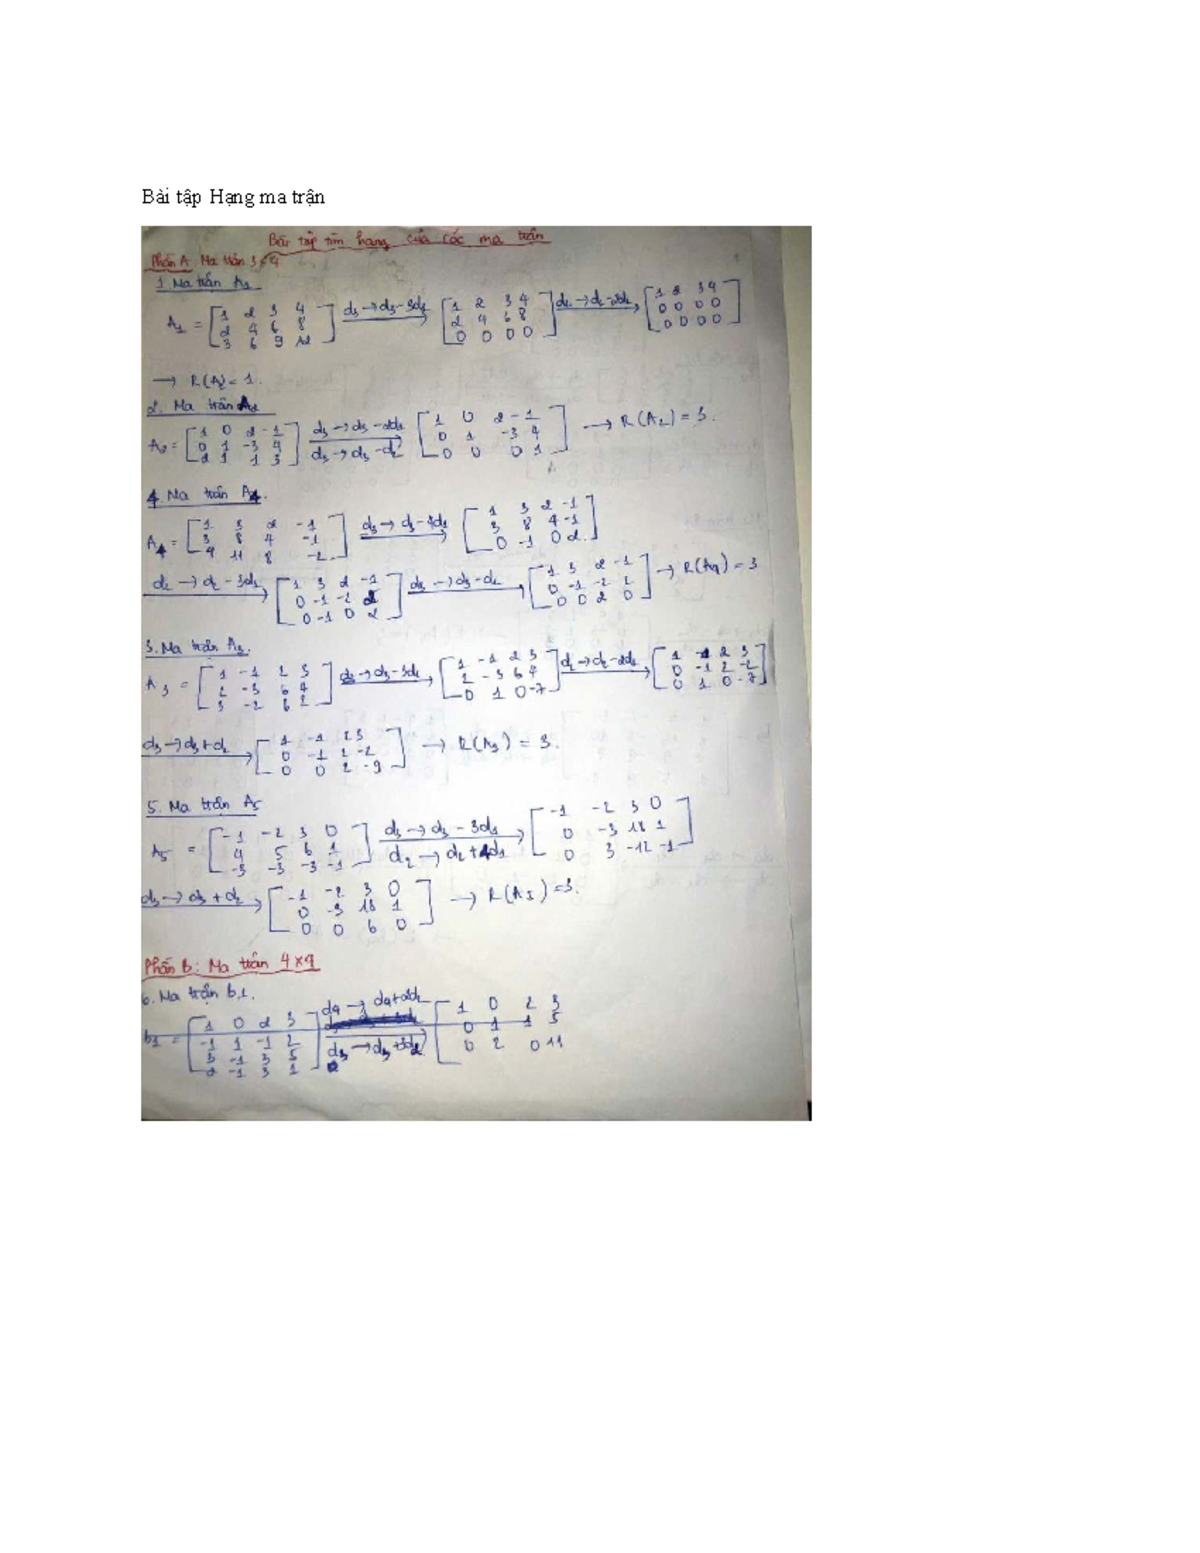 Bài tập Hạng ma trận
Bài tập tìm hạng của các ma trận
Phần A Ma trận 3×4
1. Ma trận A1
A1 = [1 2 3 4; 2 4 6 8; 3 6 9 12] d3→d3-3d1 [1 2 3 4; 2 4 6 8; 0 0 0 0] d2→d2-2d1 [1 2 3 4; 0 0 0 0; 0 0 0 0]
→ R(A) = 1.
2. Ma trận A2
A2 = [1 0 2 -1; 0 1 -3 4; 2 1 1 3] d3→d3-2d1 d3→d3-d2 [1 0 2 -1; 0 1 -3 4; 0 0 0 1] → R(A2) = 3.
4. Ma trận A4.
A4 = [1 3 2 -1; 3 8 4 -1; 4 11 8 -2] d3→d3-4d1 [1 3 2 -1; 3 8 4 -1; 0 -1 0 2]
d2→d2-3d1 [1 3 2 -1; 0 -1 -2 2; 0 -1 0 2] d3→d3-d2 [1 3 2 -1; 0 -1 -2 2; 0 0 2 0] → R(A4) = 3
3. Ma trận A3.
A3 = [1 -1 2 3; 2 -3 6 4; 3 -2 6 2] d3→d3-3d1 [1 -1 2 3; 2 -3 6 4; 0 1 0 -7] d2→d2-2d1 [1 -1 2 3; 0 -1 2 -2; 0 1 0 -7]
d3→d3+d2 [1 -1 2 3; 0 -1 2 -2; 0 0 2 -9] → R(A3) = 3.
5. Ma trận A5
A5 = [-1 -2 3 0; 4 5 6 1; -3 -3 -3 -1] d3→d3-3d1 d2→d2+4d1 [-1 -2 3 0; 0 -3 18 1; 0 3 -12 -1]
d3→d3+d2 [-1 -2 3 0; 0 -3 18 1; 0 0 6 0] → R(A5) = 3.
Phần B: Ma trận 4×4
6. Ma trận b.1.
b1 = [1 0 2 3; -1 1 -1 2; 3 -1 3 5; 2 -1 3 1] d4→d4+2d2 d3→d3+3d2 [1 0 2 3; 0 1 1 5; 0 2 0 11]